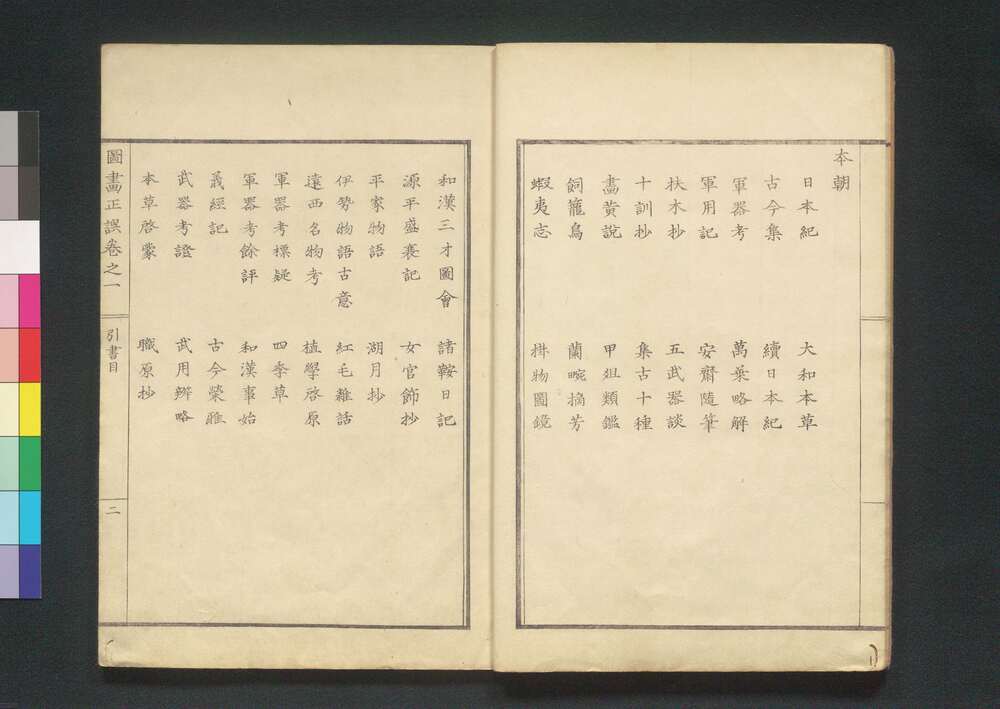 本朝
日本紀 大和本草
古今集 續日本紀
軍器考 萬葉略解
軍用記 安齋隨筆
扶木抄 五武器談
十訓抄 集古十種
畵黄說 甲冑類鑑
飼籠鳥 蘭畹摘芳
蝦夷志 物圖鏡
和漢三才圖會 諸鞍日記
源平盛衰記 女官飾抄
平家物語 湖月抄
伊勢物語古意 紅毛雜話
遠西名物考 植學啓原
軍器考標疑 四季草
軍器考餘評 和漢事始
義經記 古今榮雅
武器考證 武用辨略
本草啓蒙 職原抄
圖畵正誤卷之一 引書目 二